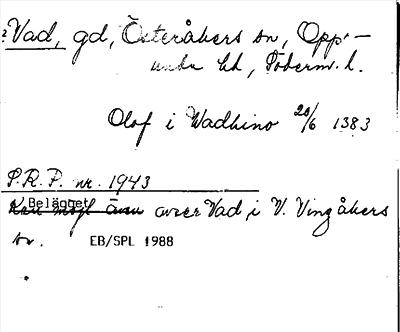 Vad, gd, Österåkers sn, Opp-
unda hd, Söderm. l.
Olof i Wadhino 20/6 1383
P.R.P. nr. 1943
Belägget
Kan möjl även avser Vad, i V. Vingåkers
sn. EB/SPL 1988